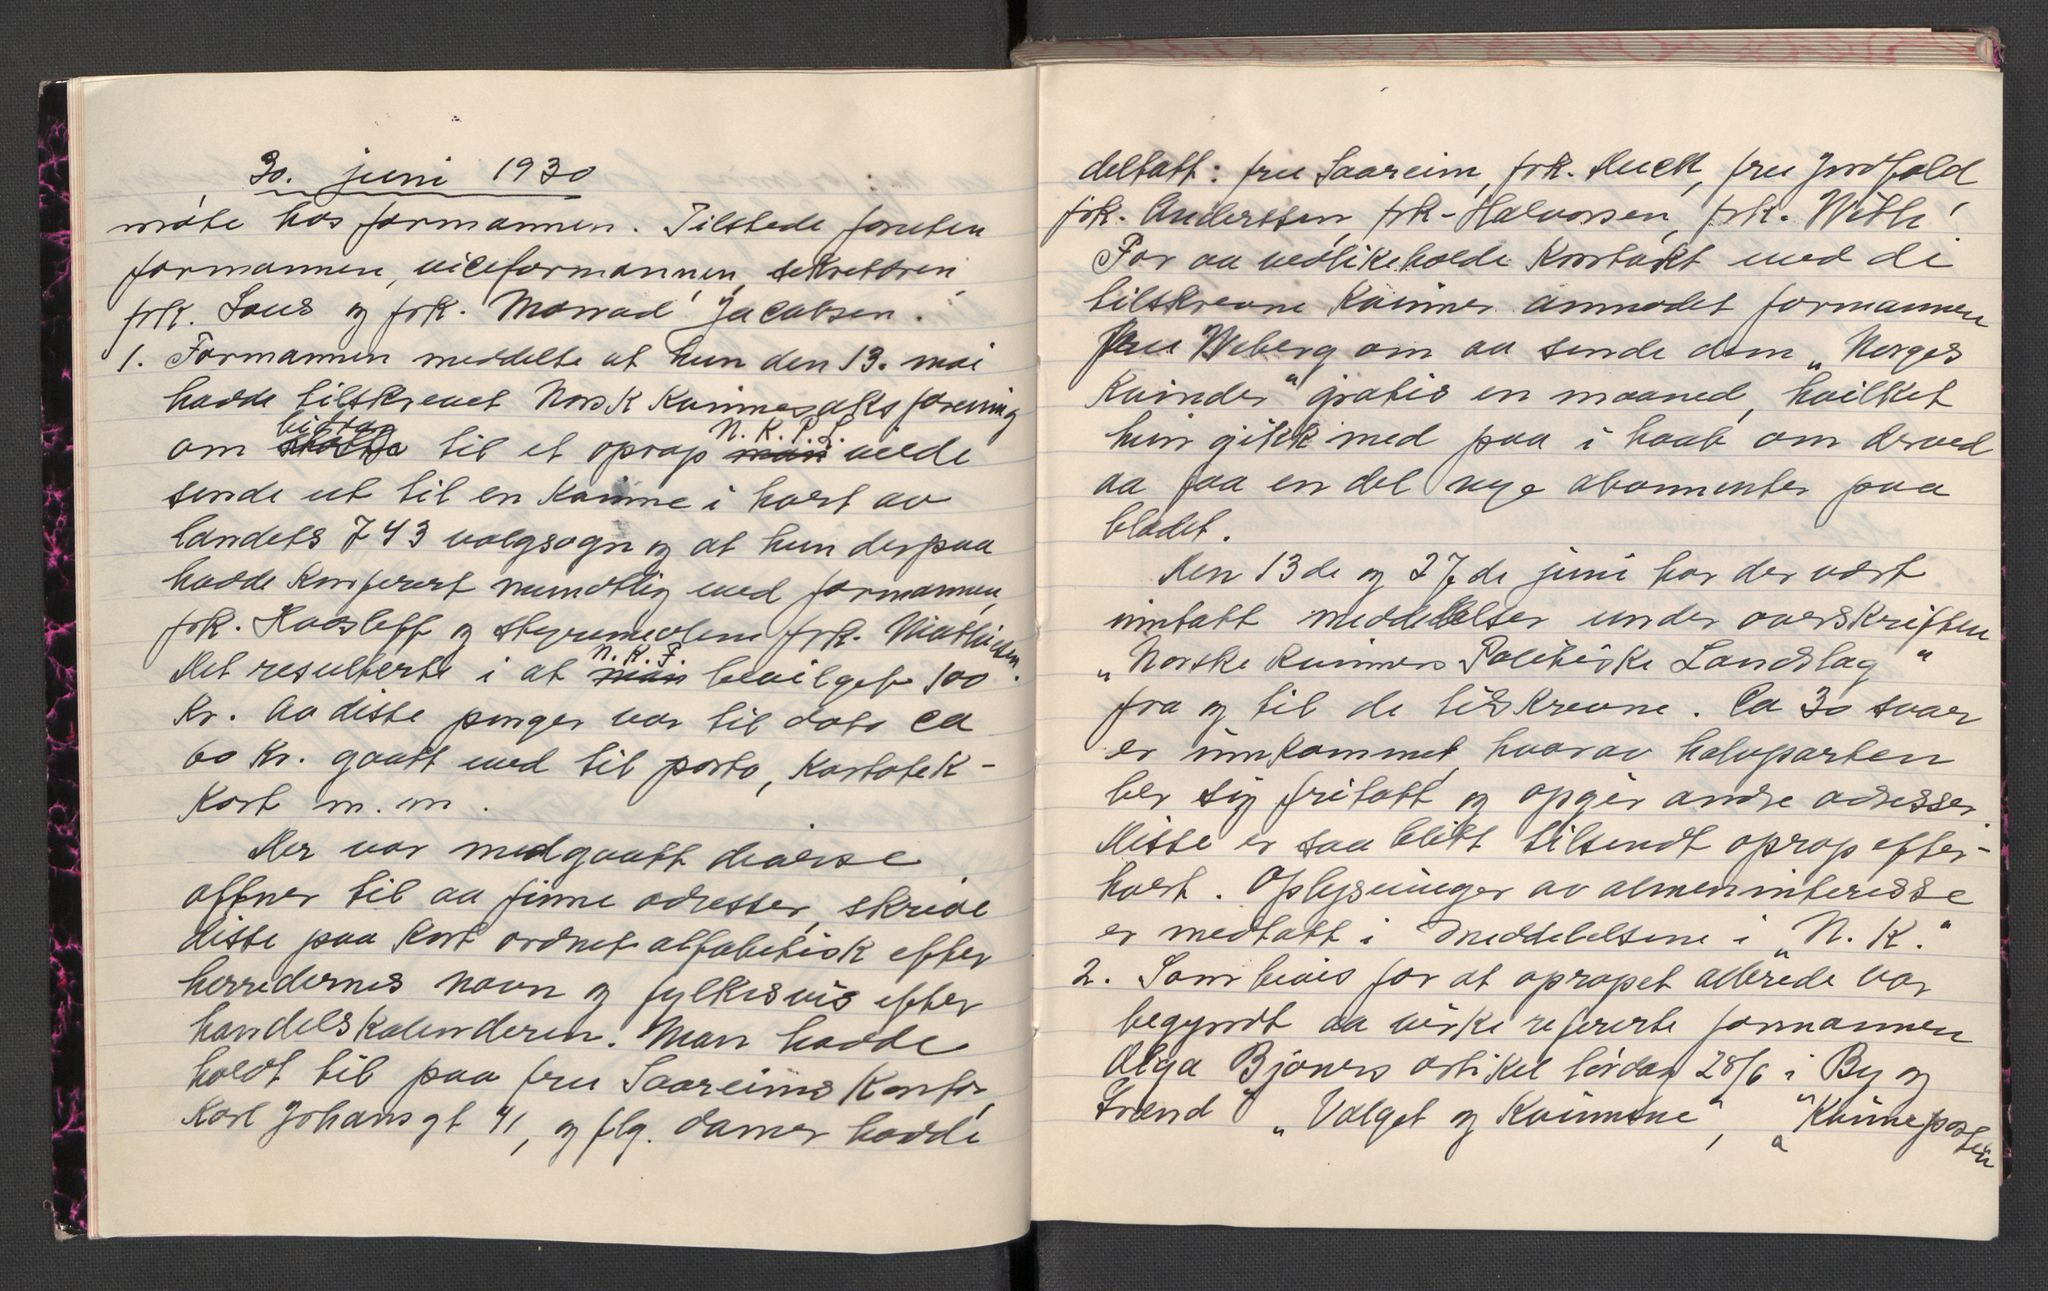 30. juni 1930
møte hos formannen. Tilstede foruten
formannen, viceformannen, sekretæren,
frk. Lous og frk. Monrad Jacobsen.
1. Formannen meddelte at hun den 13. mai
hadde tilskrevet Norsk Kvinnesaksforening
om bidrag til et oprop N.K.P.L. vilde
sende ut til en kvinne i hvert av
landets 743 valgsogn og at hun derpaa
hadde konferert mundtlig med formannen,
frk. Haasleff og styremedlem frk. Mathiesen.
Det resulterte i at N.K.F. bevilget 100
Kr. Av disse penger var til dato ca
60 Kr. gaatt med til porto, kartotek-
kort m.m.
Der var medgaatt diverse
aftner til aa finne adresser, skrive
disse paa kort ordnet alfabetisk efter
herredernes navn og fylkesvis efter
handelskalenderen. Man hadde
holdt til paa fru Saareims kontor,
Karl Johansgt 41, og flg. damer hadde
deltatt: fru Saareim, frk. Muck, fru
frk. Anderssen, frk. Halvorsen, frk. With.
For aa vedlikeholde kontakt med de
tilskrevne kvinner anmodet formannen
fru Wiberg om aa sende dem „Norges
Kvinder" gratis en maaned, hvilket
hun gikk med paa i haab om derved
aa faa en del nye abonnenter paa
bladet.
Den 13de og 27de juni har der vært
inntatt meddelelser under overskriften
„Norske Kvinners Politiske Landslag"
fra og til de tilskrevne. Ca 30 svar
er innkommet, hvorav halvparten
ber sig fritatt og opgir andre adresser.
Disse er saa blitt tilsendt oprop efter-
hvert. Oplysninger av almeninteresse
er medtatt i meddelelsene i „N.K."
2. Som bevis for at opropet allerede var
begyndt aa virke refererte formannen
Olga Bjoners artikel lørdag 28/6 i By og
Strand „Valget og Kvinnene", „Kvinneposten